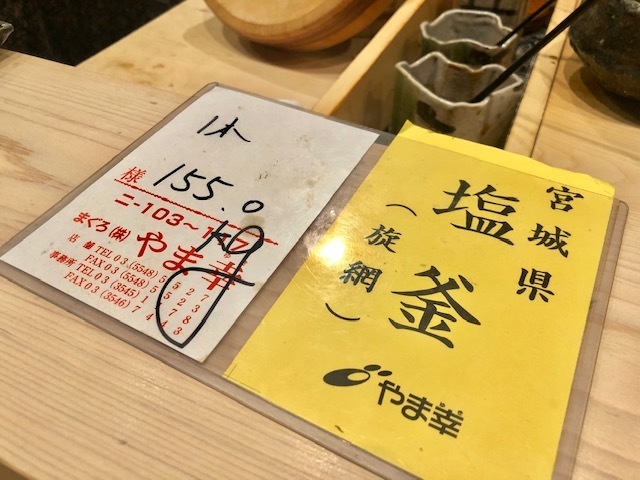 1本
様
155.0
kg
ニ-103~107
まぐろ(株)やま幸
店舗 TEL 03(5548)5527
FAX 03(5548)5523
事務所 TEL 03(3545)178
FAX 03(3546)7443
宮城県
塩釜
(旋網)
やま幸